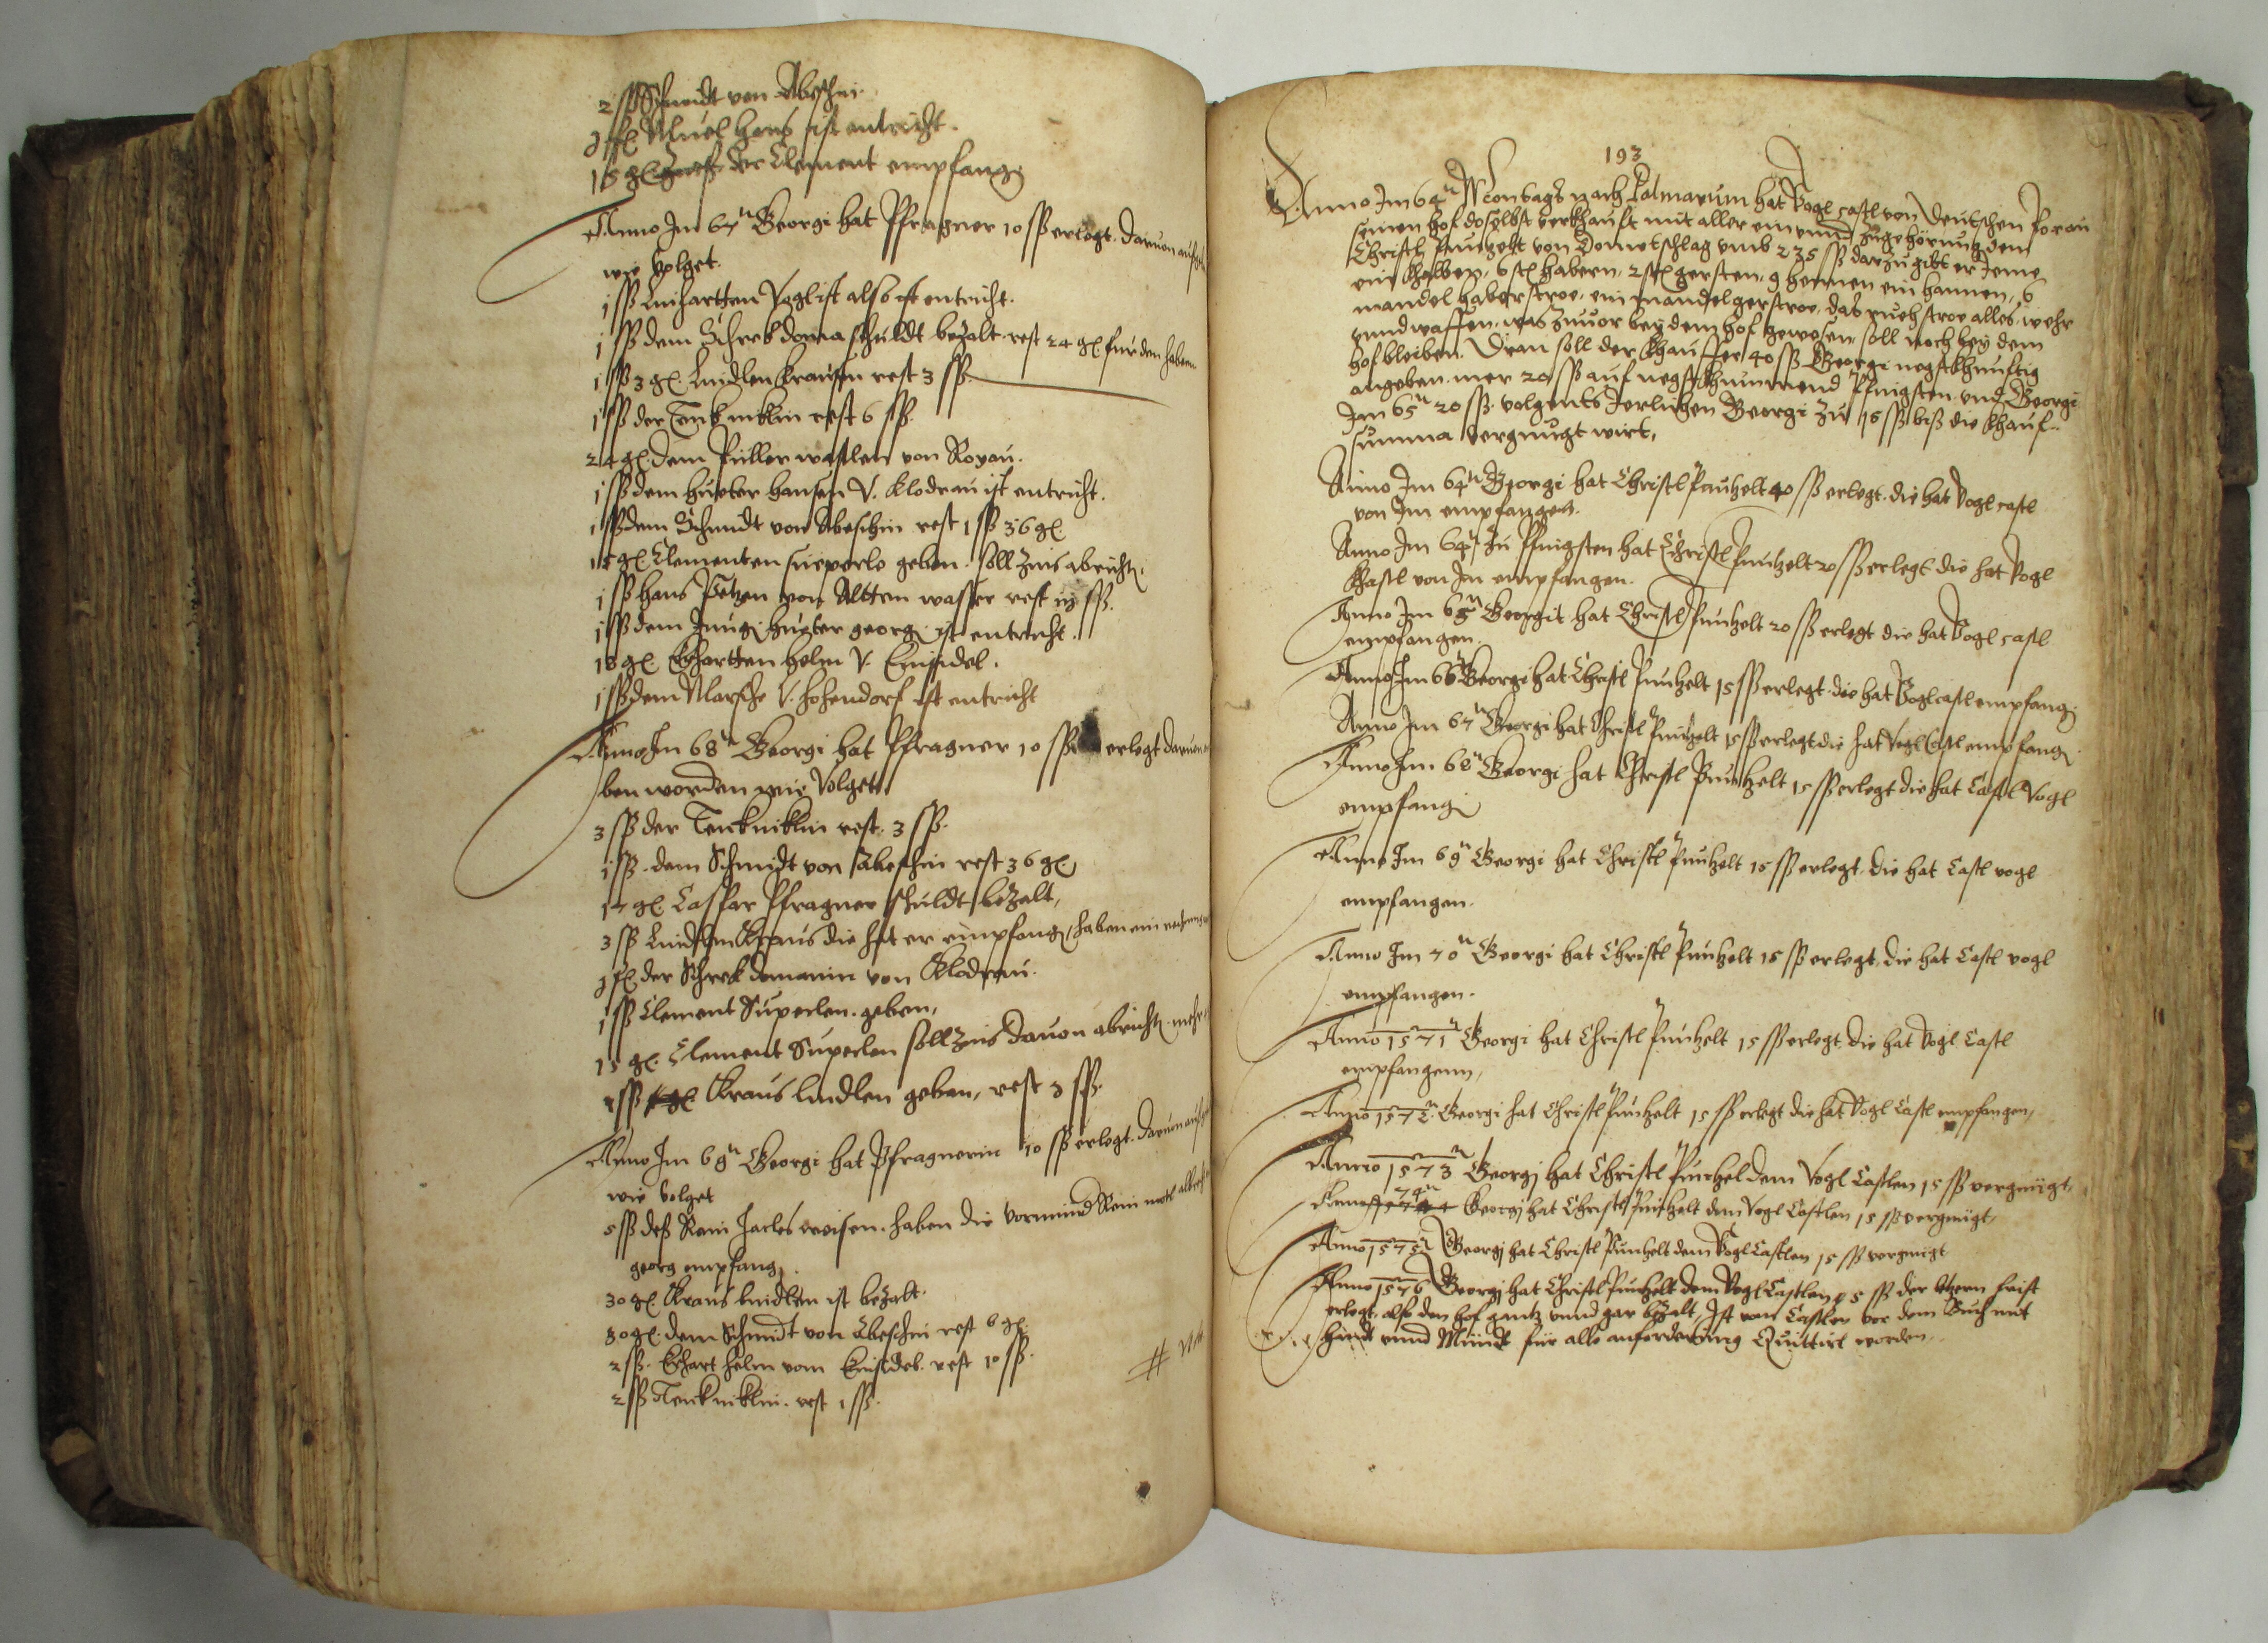 2 sß Schmidt von Abeschin.
Hans ist entricht.
15 gl. der Clement empfang
Anno Im 67n Georgi hat Pfragner 10 sß erlegt. daruon
wie Volget.
1 sß Linharten Vogl ist also ist entricht.
1 sß dem Schrekdoma schuldt bezalt rest 24 gl. fur den habern
1 sß 3 gl. Lindlen Krausen rest 3 sß.
1 sß der Tenkniklin rest 6 sß.
24 gl. dem Puller wastlen von Royau.
1 sß dem hueter hansen V. Klodrau ist entricht.
1 sß dem Schmidt von Abeschin rest 1 sß 36 gl
15 gl Clementen Superle geben. soll Zins abricht.
1 sß hans Petzen von Altten wasser rest iij sß.
1 sß dem Jung hueter georg ist entricht.
18 gl. Ekhartten helm V. Einsidel.
1 sß dem Marsche V. hohendorf ist entricht
Anno Im 68n Georgi hat Pfragner 10 sß erlegt daruon
ben worden wie Volget
3 sß der Tenkniklin rest. 3 sß.
1 sß. dem Schmidt von Abeschin rest 36 gl
17 gl. Caspar Pfragner schuldt bezalt,
3 sß Lindlen Kraus die hat er empfang haben ein
der Schrekdomanin von Klodrau.
1 sß Clement Superlen. geben,
15 gl. Clement Superlen soll Zins dauon abricht. mehr
1 sß Kraus lindlen geben, rest 3 sß.
Anno Im 69n Georgi hat Pfragnerin 10 sß erlegt. daruon
wie Volget
5 sß deß Rein Jacles weisen. haben die Vormund Rein
georg empfang.
30 gl. Kraus lindlen ist bezalt.
30 gl. dem Schmidt von Abeschin rest 6 gl.
2 sß. Ekhart helm vom Einsidel. rest 10 sß.
2 sß Tenkniklin. rest 1 sß.
#
193
Anno Im 64n Montags nach Palmarum hat Vogl castl von Deutschen Borau
seinen hof doselbst verkhauft mit aller ein vnnd zugehörnug dem
Christl Punhelt von Dometschlag vmb 235 sß darzu gibt er Jeme
ein Khalben, 6 stl habern, 2 stl gersten, 9 hennen ein hannen, 6
mandel haberstroe, ein mandel gerstroe, das ruehstroe alles, wehr
vnnd waffen, was zuuor bey dem hof gewesen, soll noch bey dem
hof bleiben. Dran soll der Khauffer 40 sß Georgi negstkhunftig
angeben. mer 20 sß auf negstkhummend Pfingsten vnd Georgi
Im 65n 20 sß. volgents Jerlichen Georgi zu 15 sß biß die Khauf-
summa vergnugt wirt,
Anno Im 64n Georgi hat Christl Punhelt 40 sß erlegt. die hat Vogl castl
von Im empfangen.
Anno Im 64n Zu Pfingsten hat Christl Punhelt 20 sß erlegt die hat Vogl
Khastl von Im empfangen.
Anno Im 65n Georgii hat Christl Punhelt 20 sß erlegt die hat Vogl castl
empfangen.
Anno Im 66n Georgi hat Christl Punhelt 15 sß erlegt. die hat Vogl castl empfang
Anno Im 67n Georgi hat Christl Punhelt 15 sß erlegt die hat Vogl Castl empfang
Anno Im 68n Georgi hat Christl Punhelt 15 sß erlegt die hat Castl Vogl
empfang
Anno Im 69n Georgi hat Christl Punhelt 15 sß erlegt, die hat Castl vogl
empfangen.
Anno Im 70n Georgi hat Christl Punhelt 15 sß erlegt, die hat Castl vogl
empfangen.
Anno 1571n Georgi hat Christl Punhelt 15 sß erlegt, die hat Vogl Castl
empfangenn,
Anno 1572n Georgi hat Christl Punhelt 15 sß erlegt die hat Vogl Castl empfangen,
Anno 1573n Georgj hat Christl Punhel dem Vogl Castlen 15 sß vergnügt,
Anno 74n Georgj hat Christl Punhelt dem Vogl Castlen 15 sß vergnügt,
Anno 1575n Georgj hat Christl Punhelt dem Vogl Castlen 15 sß vergnügt
Anno 1576 Georgj hat Christl Punhelt dem Vogl Castlen 5 sß der letzern frist
erlegt, also den hof gantz vnnd gar bezalt, Ist von Castlen vor dem Buch mit
handt vnnd Mundt für alle anforderung Quittirt worden.